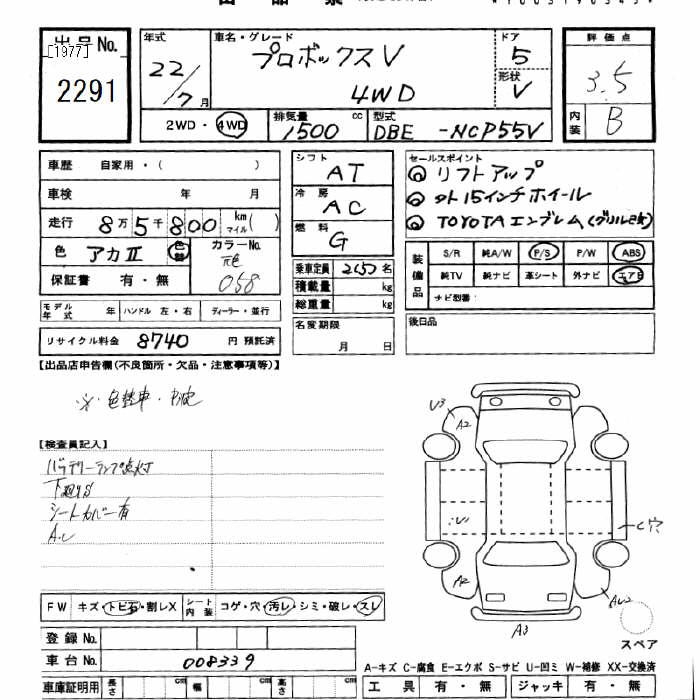 出品No.
[1977]
2291
年式
22/7月
車名・グレード
プロボックスV
4WD
ドア
5
形状
V
評価点
3.5
内装
B
2WD・4WD
排気量
1500cc
型式
DBE-NCP55V
車歴 自家用・( )
車検 年 月
走行 8万5千800 km マイル( )
色 アカII 色替
カラーNo.
元色
058
保証書 有・無
モデル年式 年 ハンドル 左・右 ディーラー・並行
リサイクル料金 8740 円 預託済
シフト
AT
冷房
AC
燃料
G
乗車定員 2(5)名
積載量 kg
総重量 kg
名変期限
月 日
セールスポイント
リフトアップ
外15インチホイール
TOYOTAエンブレム
装備品
S/R 純A/W P/S P/W ABS
純TV 純ナビ 革シート 外ナビ エアB
ナビ型番:
後日品
【出品店申告欄(不良箇所・欠品・注意事項等)】
※・色替車・
【検査員記入】
バッテリーランプ点灯
下廻りS
シートカバー有
A.U
U3
A2
U
C穴
A2
A3
AU2
スペア
FW キズ・トビ石・割レX
シート内装 コゲ・穴・汚レ・シミ・破レ・スレ
登録No.
車台No. 008339
車庫証明用 長さ cm 幅 cm 高さ cm
A-キズ C-腐食 E-エクボ S-サビ U-凹ミ W-補修 XX-交換済
工具 有・無 ジャッキ 有・無